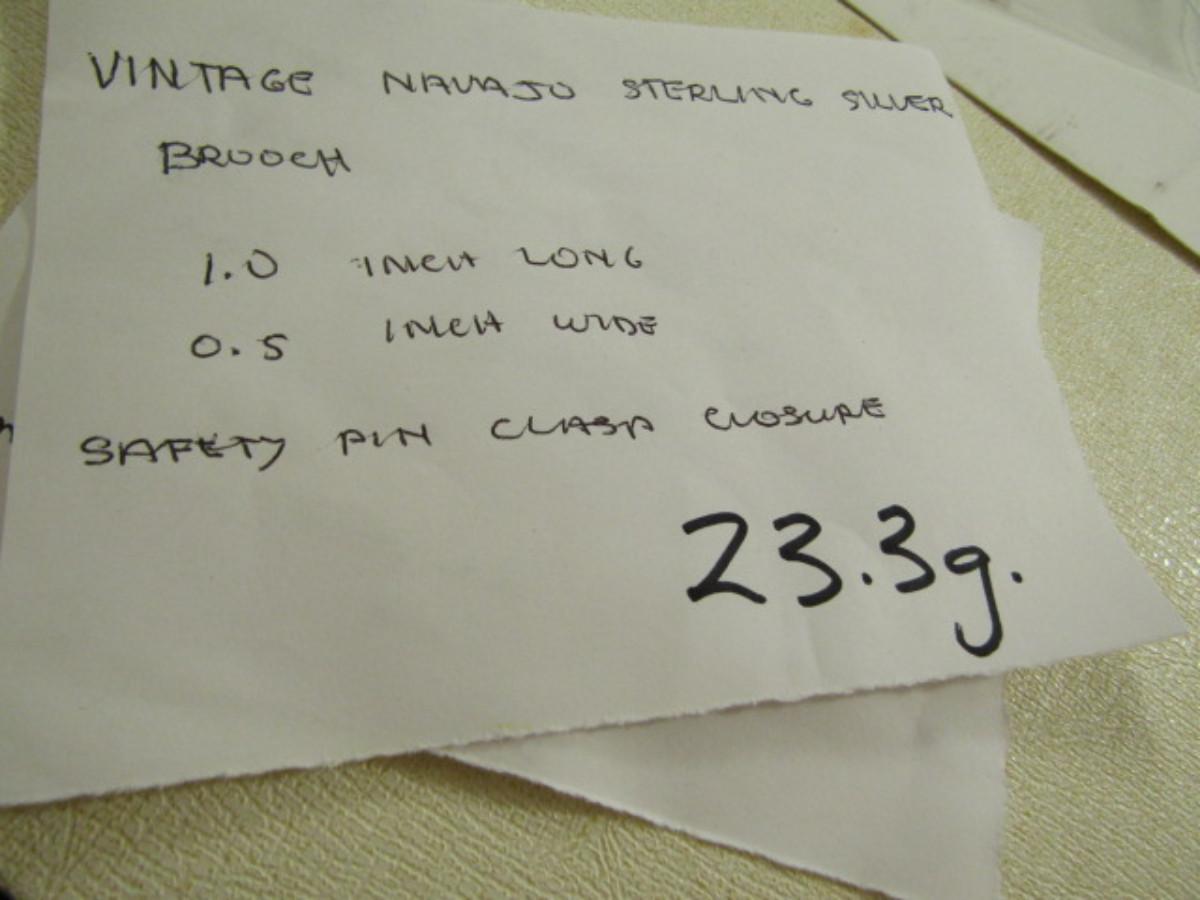 VINTAGE NAVAJO STERLING SILVER
BROOCH
1.0 INCH LONG
0.5 INCH WIDE
SAFETY PIN CLASP CLOSURE
23.3g.